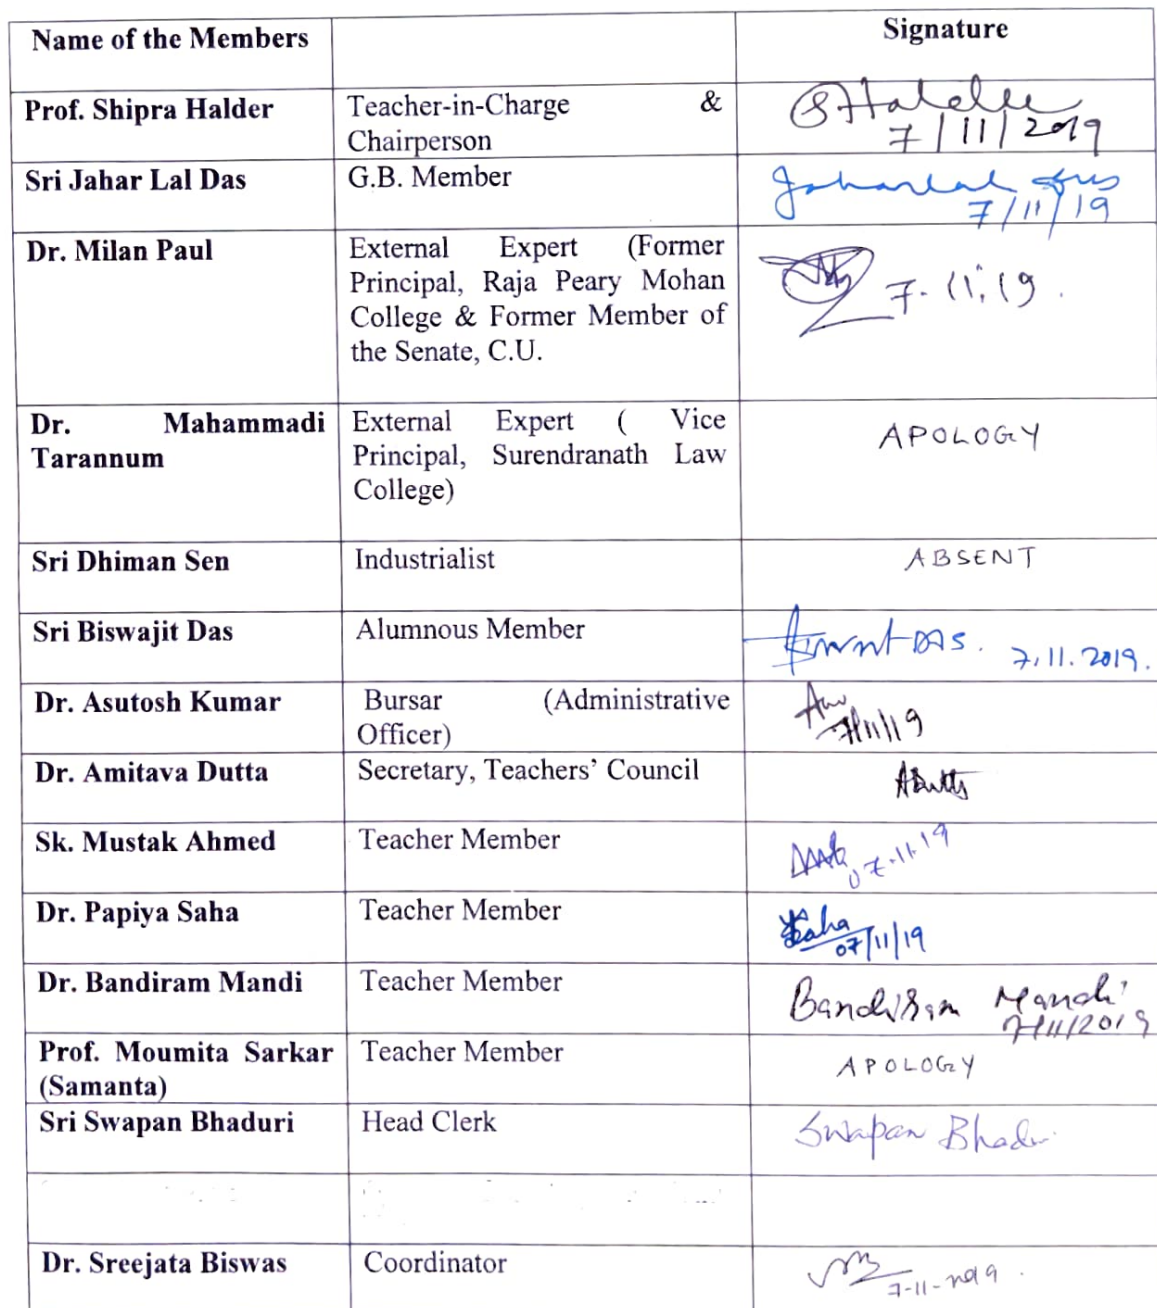 Name of the Members Signature
Prof. Shipra Halder Teacher-in-Charge & SHalder
Chairperson 7/11/2019
Sri Jahar Lal Das G.B. Member Jaharlal Das
7/11/19
Dr. Milan Paul External Expert (Former
Principal, Raja Peary Mohan 7.11.19.
College & Former Member of
the Senate, C.U.
Dr. Mahammadi External Expert ( Vice APOLOGY
Tarannum Principal, Surendranath Law
College)
Sri Dhiman Sen Industrialist ABSENT
Sri Biswajit Das Alumnous Member DAS. 7.11.2019.
Dr. Asutosh Kumar Bursar (Administrative
Officer) 7/11/19
Dr. Amitava Dutta Secretary, Teachers' Council ADutta
Sk. Mustak Ahmed Teacher Member 07.11.19
Dr. Papiya Saha Teacher Member Saha
07/11/19
Dr. Bandiram Mandi Teacher Member Bandiram Mandi
7/11/2019
Prof. Moumita Sarkar Teacher Member APOLOGY
(Samanta)
Sri Swapan Bhaduri Head Clerk Swapan Bhaduri
Dr. Sreejata Biswas Coordinator 7-11-2019.